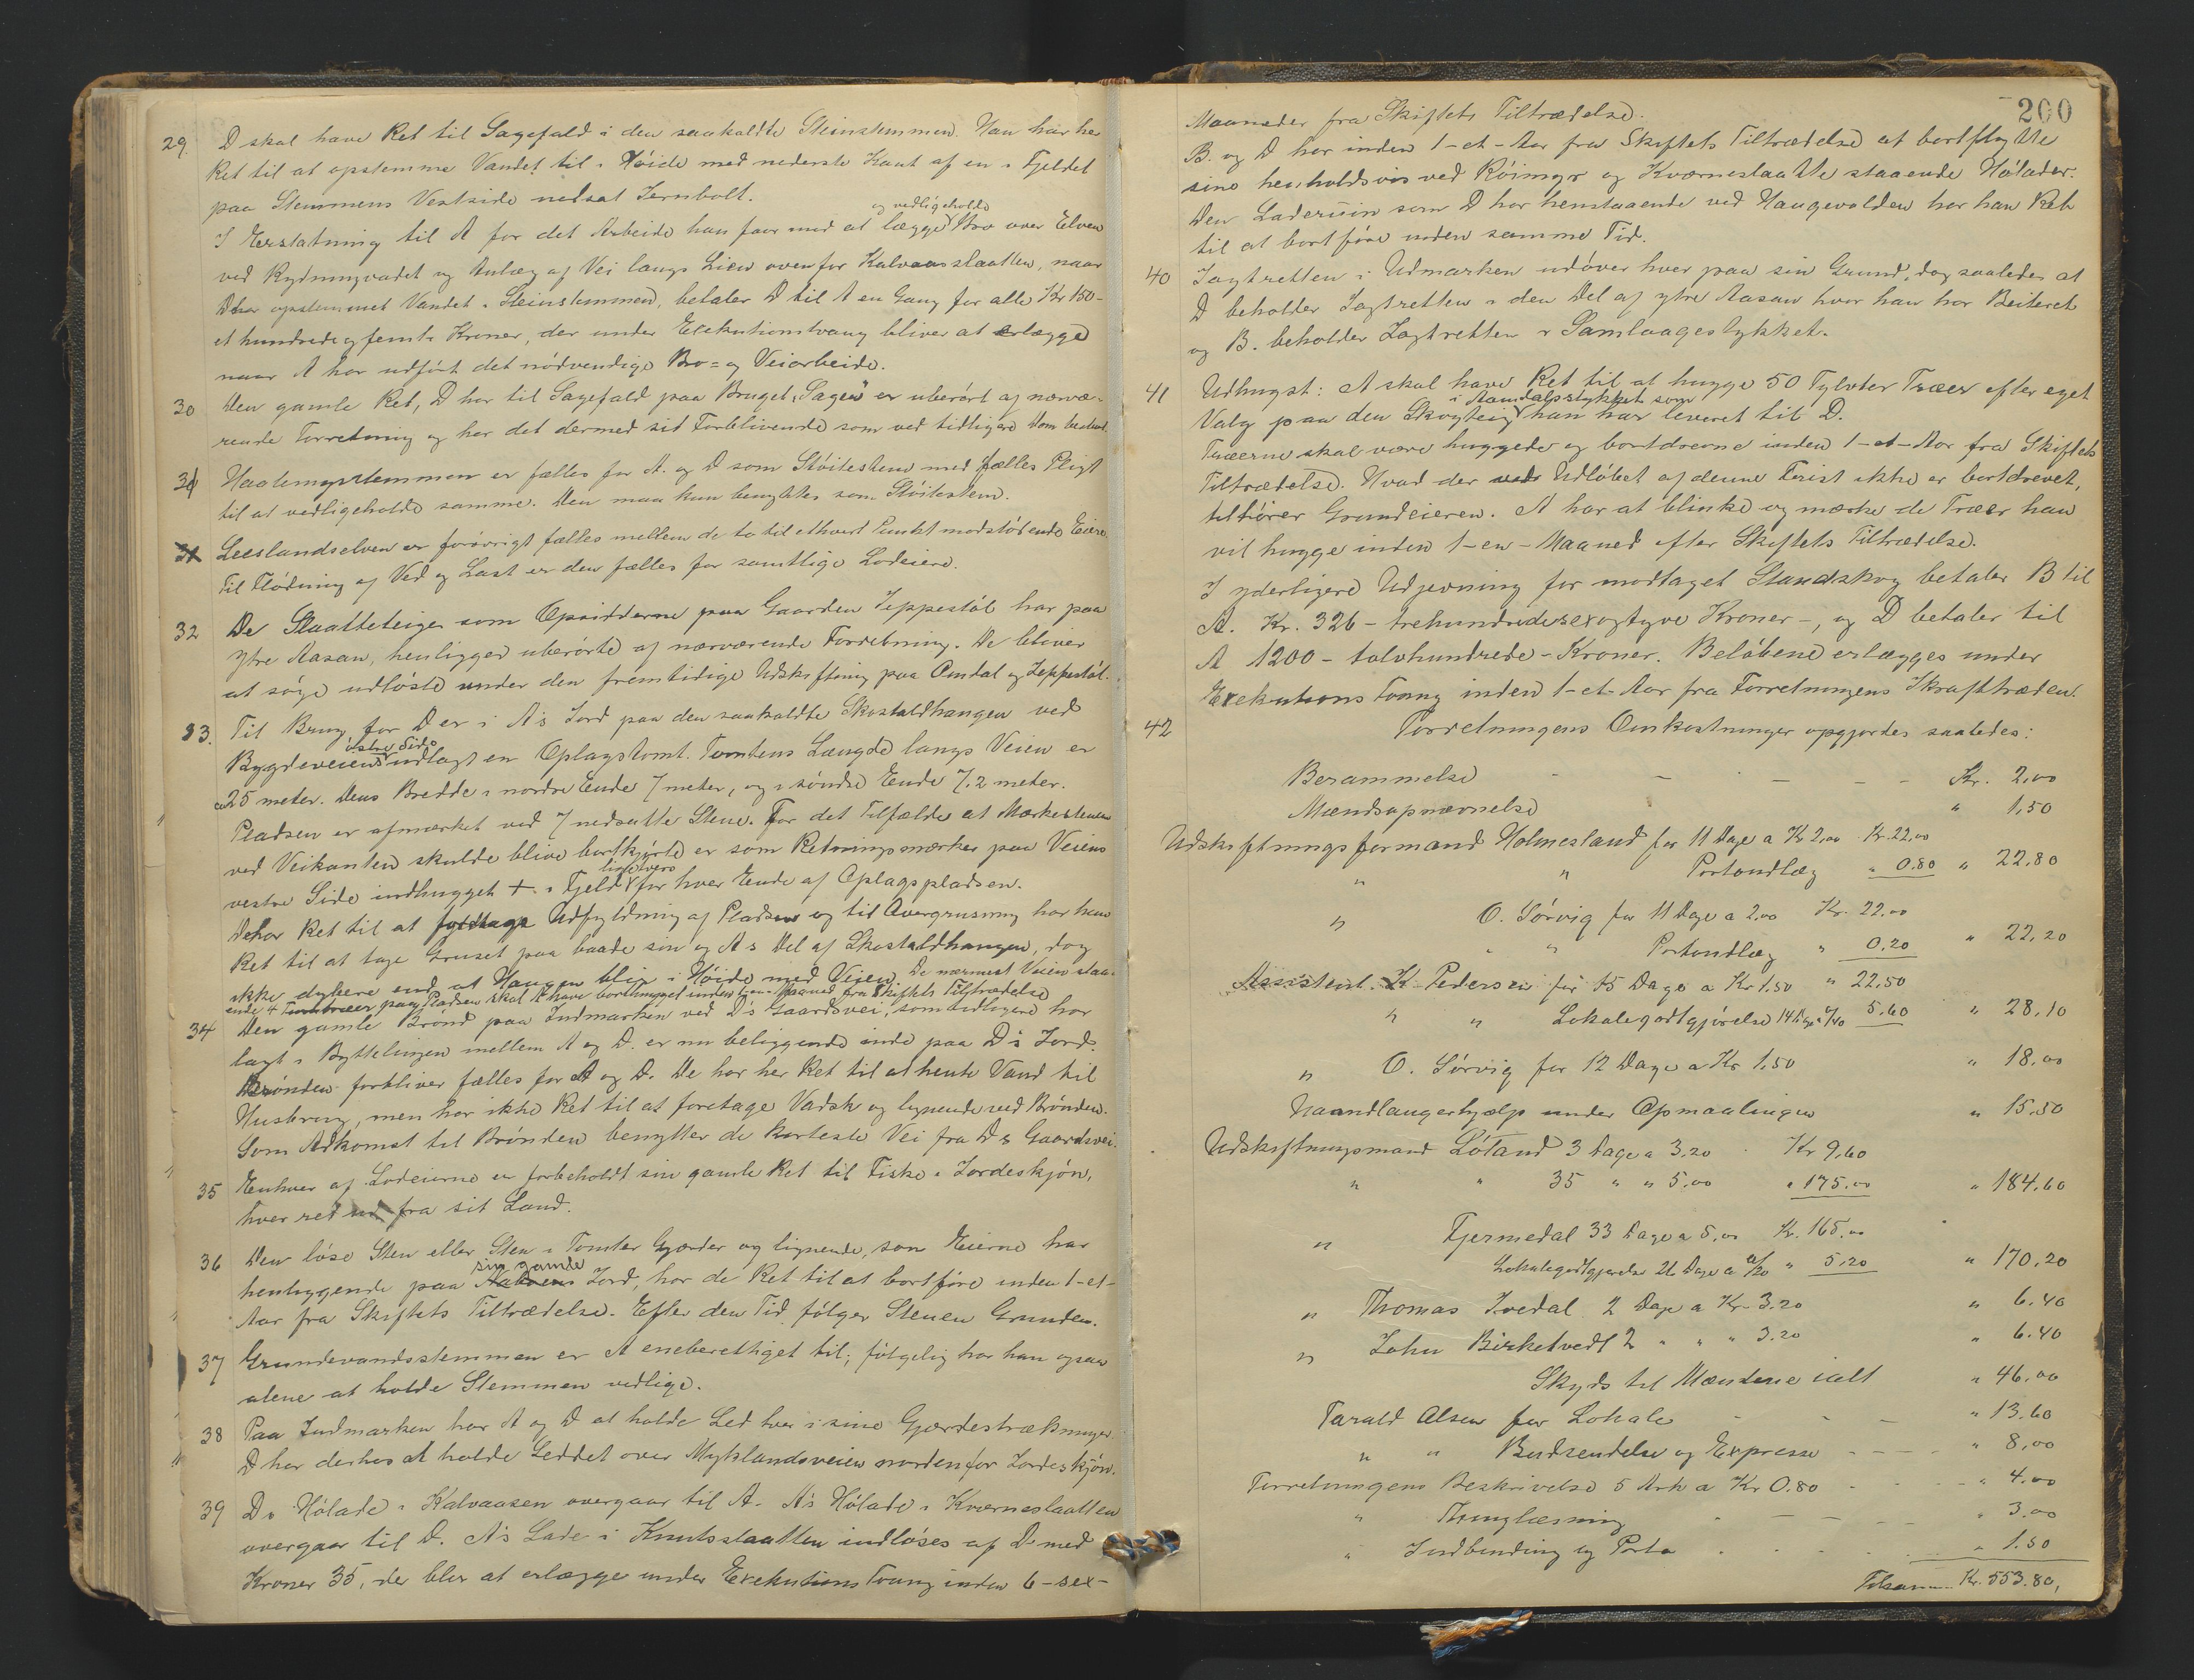 29. D skal have Ret til Sagefald i den saakaldte Steinstemmen. Han har her
Ret til at opstemme Vandet til i Høide med nederste Kant af en i Fjeldet
paa Stemmens Vestside nedsat Jernbolt.
I Erstatning til A for det Arbeide han faar med at lægge og vedligeholde Bro over Elven
ved Rydningvadet og Anlæg af Vei langs Lien ovenfor Kalvaasslaatten, naar
D har opstemmet Vandet i Steinstemmen, betaler D til A en Gang for alle Kr 150 -
et hundrede og femti Kroner, der under Exekutionstvang bliver at erlægge
naar A har udført det nødvendige Bro= og Veiarbeide.
30 Den gamle Ret, D har til Sagefald paa Bruget „Sagen" er uberørt af nærvæ-
rende Forretning og har det dermed sit Forblivende som ved tidligere Dom bestemt.
31 Haalemyrstemmen er fælles for A. og D som Støitestem med fælles Pligt
til at vedligeholde samme. Den maa kun benyttes som Støitestem.
31 Leeslandselven er forøvrigt fælles mellem de to til ethvert Punkt modstøtende Eiere.
Til Flødning af Ved og Last er den fælles for samtlige Lodeiere.
32 De Slaatteteiger som Opsidderne paa Gaarden Jeppestøl har paa
Ytre Aasan, henligger uberørte af nærværende Forretning. De bliver
at søge udløste under den fremtidige Udskiftning paa Omdal og Jeppestøl.
33. Til Brug for D er i A's Jord paa den saakaldte Skostaldhaugen ved
Bygdeveiens østre Side udlagt en Oplagstomt. Tomtens Længde langs Veien er
ca 25 meter. Dens Bredde i nordre Ende 7 meter, og i søndre Ende 7,2 meter.
Pladsen er afmærket ved 7 nedsatte Stene. For det Tilfælde at Mærkestenene
ved Veikanten skulde blive bortkjørte er som Retningsmærker paa Veiens
vestre Side indhugget + i Fjeld ligetvers for hver Ende af Oplagspladsen.
D har Ret til at foretage Udfyldning af Pladsen og til Overgrusning har han
Ret til at tage Gruset paa baade sin og A s Del af Skostaldhaugen, dog
ikke dybere end at Haugen blir i Høide med Veien. De nærmest Veien staa-
ende 4 Furutræer paa Pladsen skal A have borthugget inden 1 en Maaned fra Skiftets Tiltrædelse
34 Den gamle Brønd paa Indmarken ved D's Gaardsvei, som tidligere har
lagt i Byttelinjen mellem A og D. er nu beliggende inde paa D's Jord.
Brønden forbliver fælles for A og D. De har her Ret til at hente Vand til
Husbrug, men har ikke Ret til at foretage Vadsk og lignende ved Brønden.
Som Adkomst til Brønden benytter de korteste Vei fra D s Gaardsvei.
35 Enhver af Lodeierne er forbeholdt sin gamle Ret til Fiske i Jordeskjøn,
hver ret ud fra sit Land.
36 Den løse Sten eller Sten i Tomter Gjærder og lignende, som Eierne har
henliggende paa sin gamle Jord, har de Ret til at bortføre inden 1-et-
Aar fra Skiftets Tiltrædelse. Efter den Tid følger Stenen Grunden.
37 Grundevandsstemmen er A eneberettiget til, følgelig har han ogsaa
alene at holde Stemmen vedlige.
38 Paa Indmarken har A og D at holde Led hver i sine Gjærdestrækninger.
D har derhos at holde Leddet over Myklandsveien nordenfor Jordeskjøn.
39 Ds Hølade i Kalvaasen overgaar til A. A's Hølade i Kværneslaatten
overgaar til D. A's Lade i Knutsslaatten indløses af D med
Kroner 35, der blir at erlægge under Exekutions Tvang inden 6-sex-
200
Maaneder fra Skiftets Tiltrædelse.
B. og D har inden 1-et-Aar fra Skiftets Tiltrædelse at bortflytte
sine henholdsvis ved Röimyr og Kværneslaatte staaende Hølader.
Den Laderuin som D har henstaaende ved Haugevolden har han Ret
til at bortføre inden samme Tid.
40 Jagtretten i Udmarken udøver hver paa sin Grund, dog saaledes at
D beholder Jagtretten i den Del af ytre Aasan hvor han har Beiteret
og B. beholder Jagtretten i Samlaagestykket.
41 Udhugst: A skal have Ret til at hugge 50 Tylvter Træer efter eget
Valg paa den Skogteig i Aamdalsstykket som han har leveret til D.
Træerne skal være huggede og bortdrevne inden 1-et-Aar fra Skiftets
Tiltrædelse. Hvad der ved Udløbet af denne Frist ikke er bortdrevet,
tilhører Grundeieren. A har at blinke og mærke de Træer han
vil hugge inden 1-en-Maaned efter Skiftets Tiltrædelse.
I yderligere Udjevning for modtaget Standskog betaler B til
A. Kr. 326 - trehundredesexogtyve Kroner -, og D betaler til
A 1200 - tolvhundrede - Kroner. Beløbene erlægges under
Exekutions Tvang inden 1-et-Aar fra Forretningens Ikrafttræden.
42 Forretningens Omkostninger opgjordes saaledes:
Berammelse - - - - - Kr. 2,00
Mændsopnævnelse " 1,50
Udskiftningsformand Holmesland for 11 Dage a Kr 2,00 Kr. 22,00
" " Portoudlæg " 0.80 " 22,80
" O. Sørvig for 11 Dage a 2.00 Kr. 22,00
" " Portoudlæg " 0,20 " 22,20
Assistent K Pedersen for 15 Dage a Kr 1,50 " 22,50
" " Lokalegodtgjørelse 14 Dage a 0/40 5,60 " 28,10
" O. Sørvig for 12 Dage a Kr 1,50 " 18,00
Haandlangerhjælp under Opmaalingen " 15,50
Udskiftningsmand Løland 3 Dage a 3,20 Kr 9,60
" " 35 " " 5,00 " 175,00 " 184,60
" Fjermedal 33 Dage a 5,00 Kr. 165,00
Lokalegodtgjørelse 26 Dage a 0/20 " 5,20 " 170,20
" Thomas Ivedal 2 Dage a Kr. 3.20 " 6.40
" John Birketvedt 2 " " " 3.20 " 6.40
Skyds til Mændene ialt " 46,00
Tarald Olsen for Lokale - - - " 13,60
" " Budsendelse og Expresse - - - - " 8,00
Forretningens Beskrivelse 5 Ark a Kr 0.80 " 4.00
" Thinglæsning - - - " 3.00
" Indbinding og Porto " 1.50
Tilsammen Kr. 553.80,